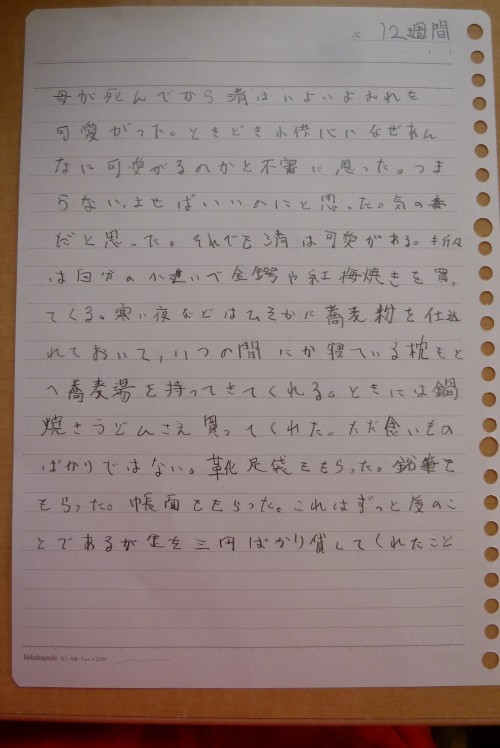 12週間
母が死んでから清はいよいよおれを
可愛がった。ときどき小供心になぜあん
なに可愛がるのかと不審に思った。つま
らない、止せばいいのにと思った。気の毒
だと思った。それでも清は可愛がる。折々
は自分の小遣いで金鍔や紅梅焼きを買っ
てくる。寒い夜などはひそかに蕎麦粉を仕込
れておいて、いつの間にか寝ている枕もと
へ蕎麦湯を持ってきてくれる。ときには鍋
焼きうどんさえ買ってくれた。ただ食いもの
ばかりではない。靴足袋ももらった。鉛筆も
もらった。帳面ももらった。これはずっと後のこ
とであるが金を三円ばかり貸してくれたこと
Nakabayashi